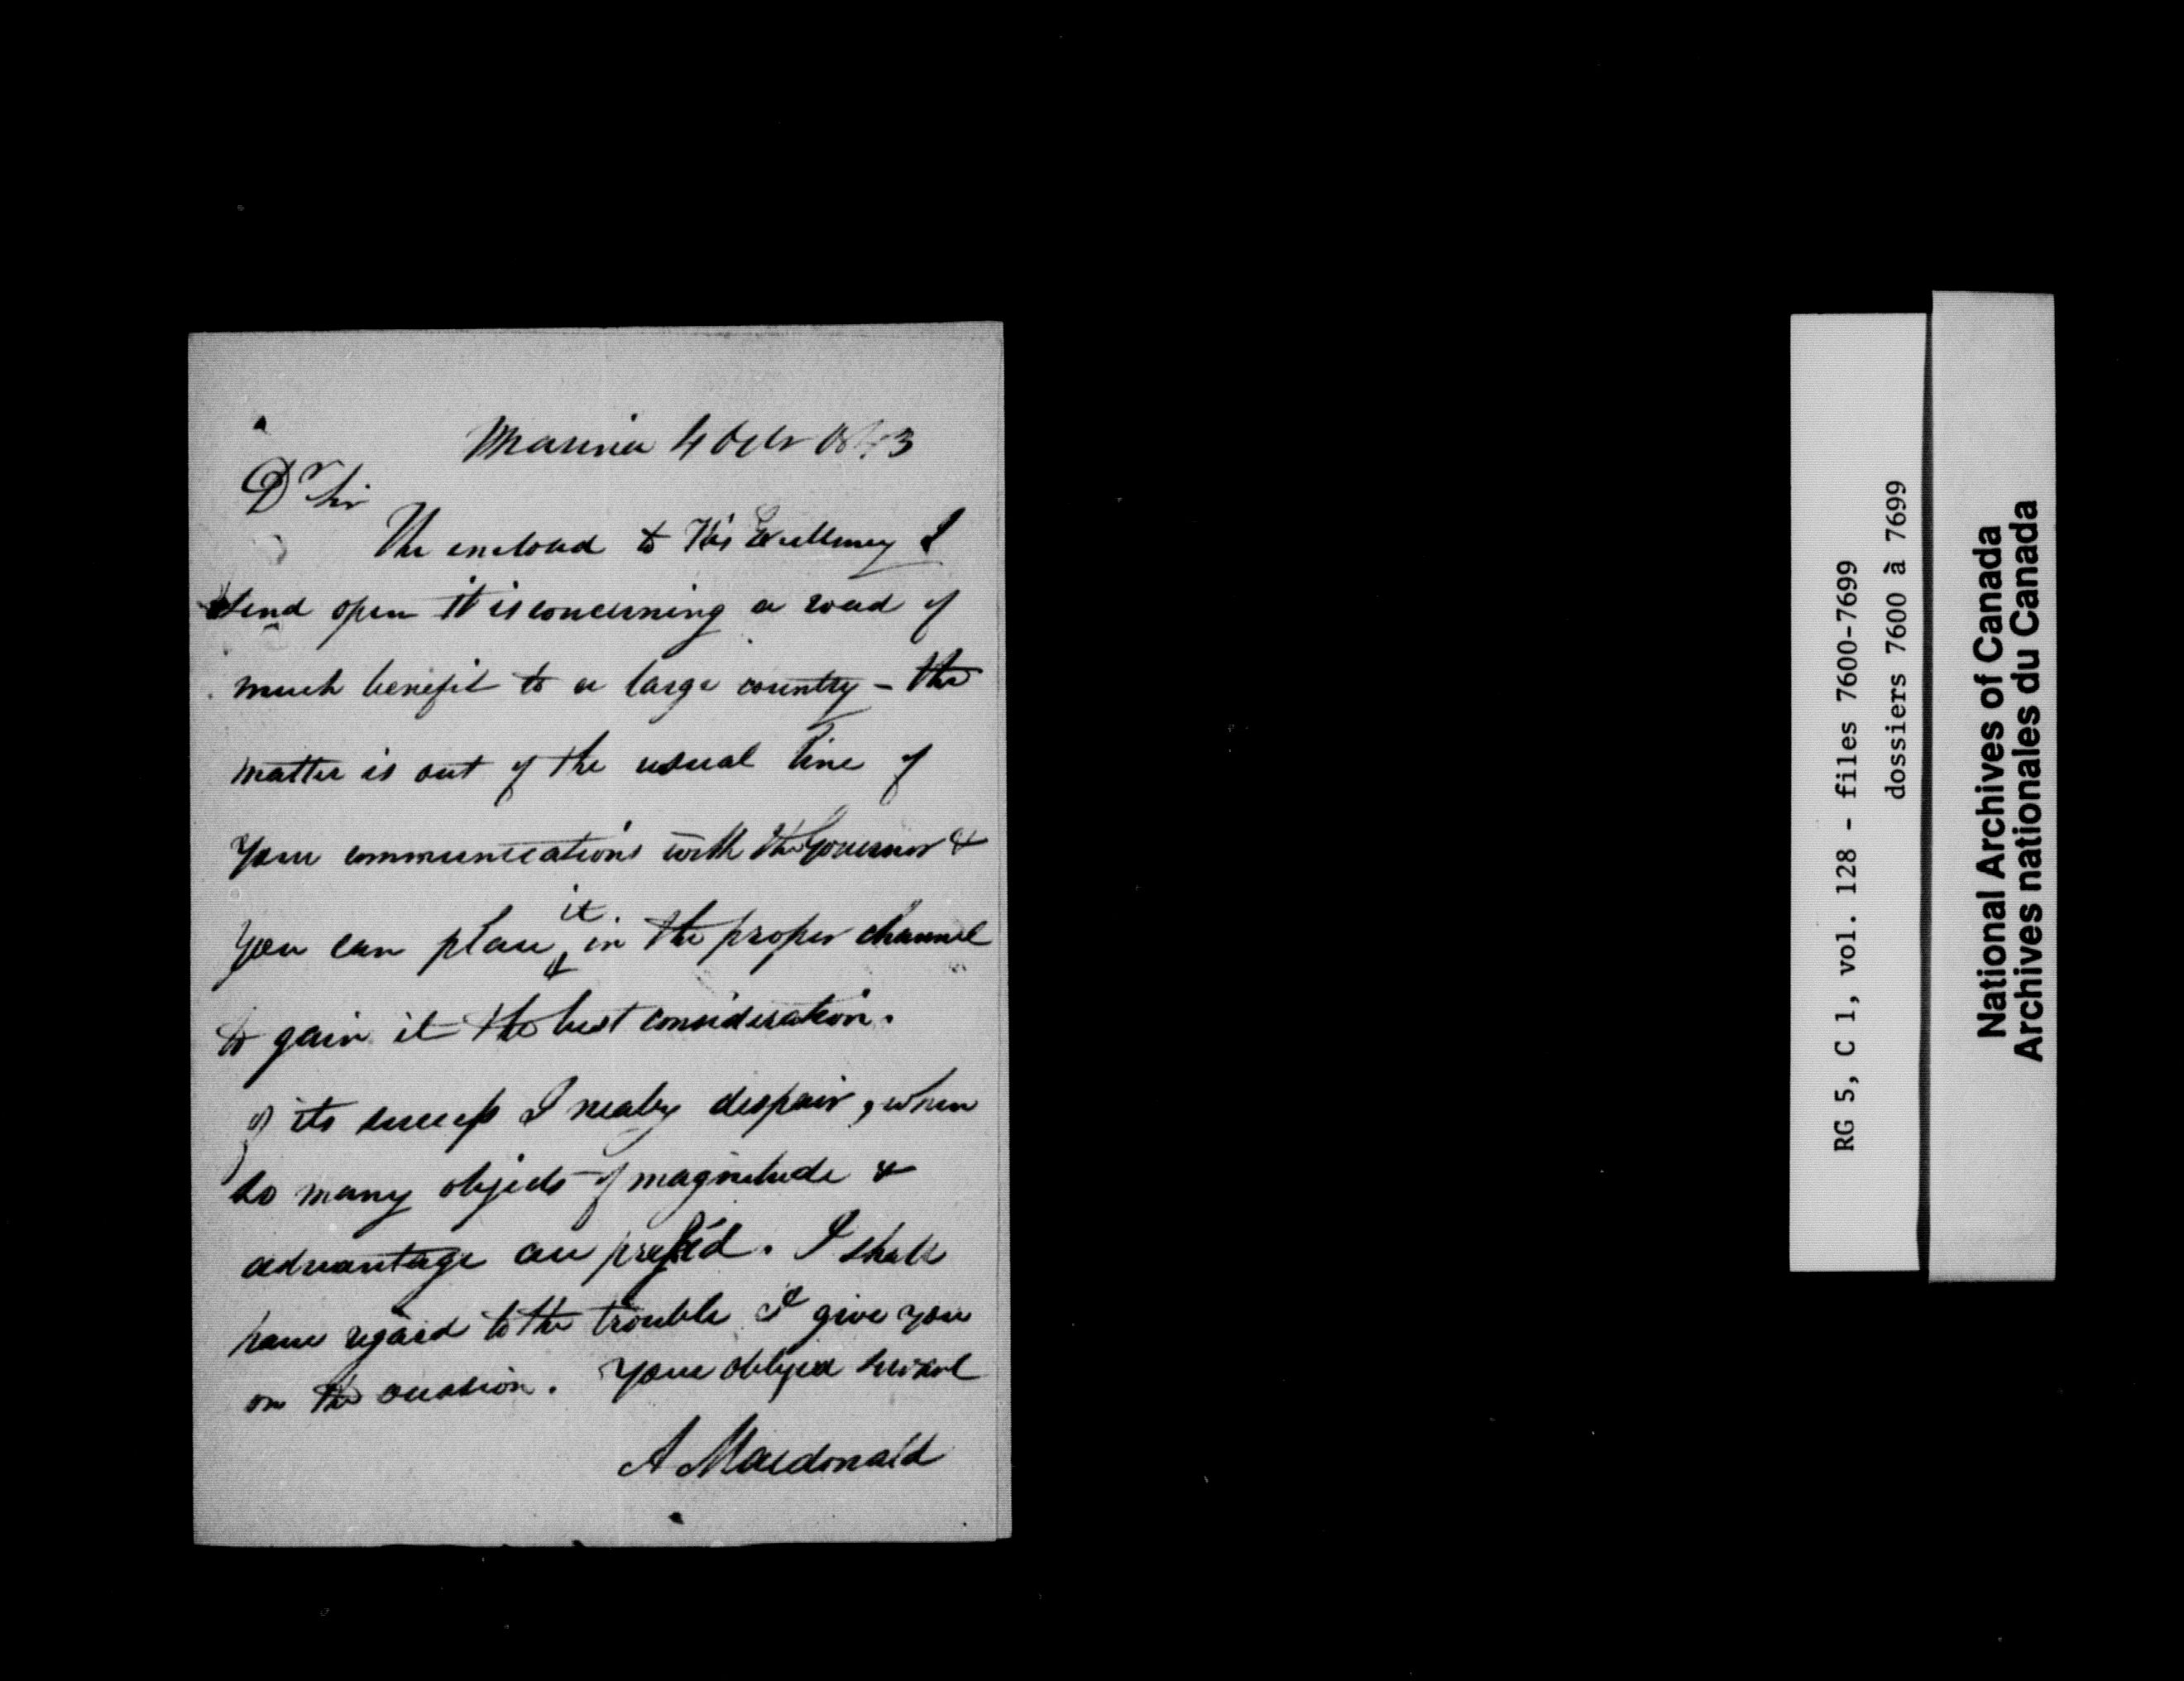 4 Octr 1843
Dr Sir
The enclosed to His Excellency I
send open it is concerning a road of
much benefit to a large country - the
matter is out of the usual line of
your communications with the Governor &
you can place it in the proper channel
to gain it the best consideration.
of its success I nealy despair, when
so many objects of magnitude &
advantage are press'd. I shall
have regard to the trouble I give you
on the occasion. Your obliged servant
A Macdonald
RG 5, C 1, vol. 128 - files 7600-7699
dossiers 7600 à 7699
National Archives of Canada
Archives nationales du Canada